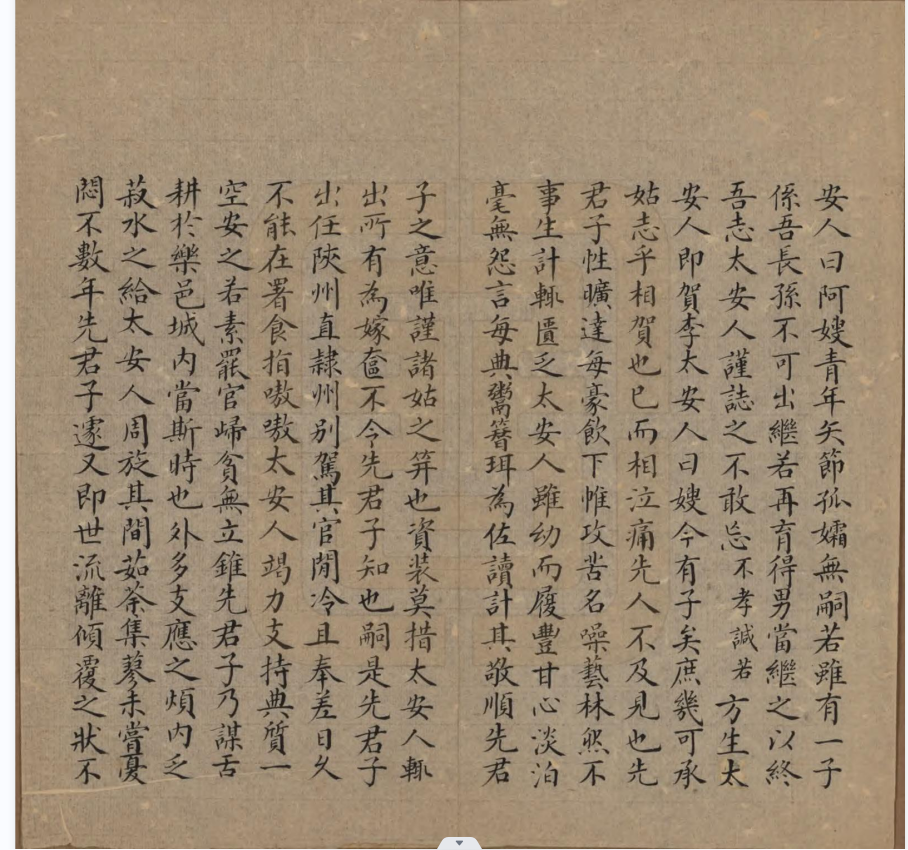 安人曰阿嫂青年矢節孤孀無嗣若雖有一子
係吾長孫不可出繼若再育得男當繼之以終
吾志太安人謹誌之不敢忘不孝誠若方生太
安人即賀李太安人曰嫂今有子矣庶幾可承
姑志乎相賀也已而相泣痛先人不及見也先
君子性曠達每豪飲下帷攻苦名噪藝林然不
事生計輒匱乏太安人雖幼而履豐甘心淡泊
毫無怨言每典鬻簪珥為佐讀計其敬順先君
子之意唯謹諸姑之筓也資裝莫措太安人輒
出所有為嫁奩不令先君子知也嗣是先君子
出任陝州直隸州别駕其官閒冷且奉差日久
不能在署食指嗷嗷太安人竭力支持典質一
空安之若素罷官歸貧無立錐先君子乃謀舌
耕於樂邑城内當斯時也外多支應之煩内乏
菽水之給太安人周旋其間茹荼集蓼未嘗憂
悶不數年先君子遽又即世流離傾覆之狀不